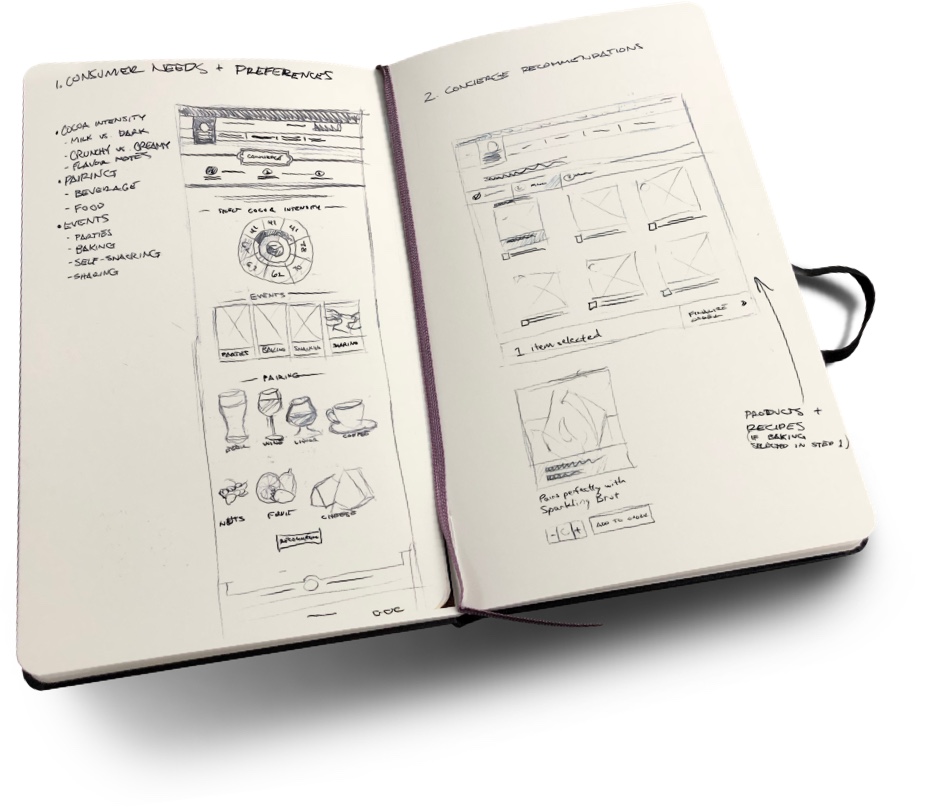 1. CONSUMER NEEDS + PREFERENCES
• COCOA INTENSITY
- MILK VS. DARK
- CRUNCHY VS. CREAMY
- FLAVOR NOTES
• PAIRING
- BEVERAGE
- FOOD
• EVENTS
- PARTIES
- BAKING
- SELF-SNACKING
- SHARING
CONCIERGE
SELECT COCOA INTENSITY
41 41
78
70
62
EVENTS
PARTIES BAKING SHARING
PAIRING
BEER WINE LIQUOR COFFEE
NUTS FRUIT CHEESE
2. CONCIERGE RECOMMENDATIONS
1 item selected
FINALIZE ORDER
Pairs perfectly with
Sparkling Brut
- +
ADD TO ORDER
PRODUCTS +
RECIPES
(IF BAKING
SELECTED IN STEP 1)